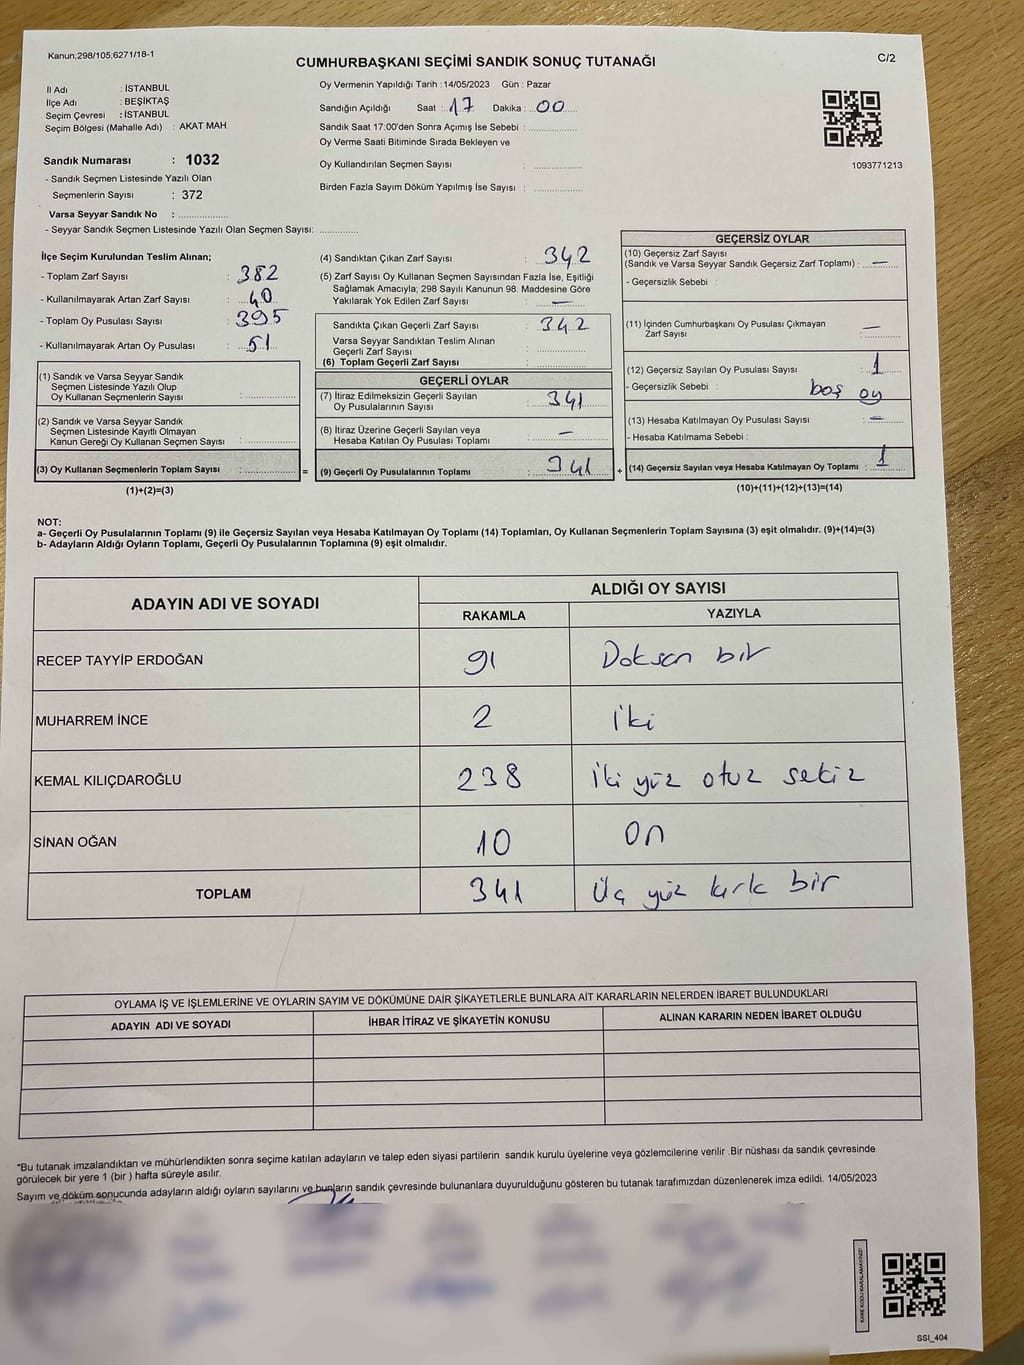 Kanun;298/105;6271/18-1
CUMHURBAŞKANI SEÇİMİ SANDIK SONUÇ TUTANAĞI
C/2
İl Adı : İSTANBUL
İlçe Adı : BEŞİKTAŞ
Seçim Çevresi : İSTANBUL
Seçim Bölgesi (Mahalle Adı) : AKAT MAH.
Sandık Numarası : 1032
- Sandık Seçmen Listesinde Yazılı Olan
Seçmenlerin Sayısı : 372
Varsa Seyyar Sandık No :
- Seyyar Sandık Seçmen Listesinde Yazılı Olan Seçmen Sayısı:
Oy Vermenin Yapıldığı Tarih : 14/05/2023 Gün : Pazar
Sandığın Açıldığı Saat : 17 Dakika : 00
Sandık Saat 17:00'den Sonra Açımış İse Sebebi :
Oy Verme Saati Bitiminde Sırada Bekleyen ve
Oy Kullandırılan Seçmen Sayısı :
Birden Fazla Sayım Döküm Yapılmış İse Sayısı :
1093771213
İlçe Seçim Kurulundan Teslim Alınan;
- Toplam Zarf Sayısı : 382
- Kullanılmayarak Artan Zarf Sayısı : 40
- Toplam Oy Pusulası Sayısı : 395
- Kullanılmayarak Artan Oy Pusulası : 51
(1) Sandık ve Varsa Seyyar Sandık
Seçmen Listesinde Yazılı Olup
Oy Kullanan Seçmenlerin Sayısı :
(2) Sandık ve Varsa Seyyar Sandık
Seçmen Listesinde Kayıtlı Olmayan
Kanun Gereği Oy Kullanan Seçmen Sayısı :
(3) Oy Kullanan Seçmenlerin Toplam Sayısı : =
(1)+(2)=(3)
(4) Sandıktan Çıkan Zarf Sayısı : 342
(5) Zarf Sayısı Oy Kullanan Seçmen Sayısından Fazla İse, Eşitliği
Sağlamak Amacıyla; 298 Sayılı Kanunun 98. Maddesine Göre
Yakılarak Yok Edilen Zarf Sayısı : —
Sandıkta Çıkan Geçerli Zarf Sayısı : 342
Varsa Seyyar Sandıktan Teslim Alınan
Geçerli Zarf Sayısı :
(6) Toplam Geçerli Zarf Sayısı :
GEÇERLİ OYLAR
(7) İtiraz Edilmeksizin Geçerli Sayılan
Oy Pusulalarının Sayısı : 341
(8) İtiraz Üzerine Geçerli Sayılan veya
Hesaba Katılan Oy Pusulası Toplamı : —
(9) Geçerli Oy Pusulalarının Toplamı : 341 +
GEÇERSİZ OYLAR
(10) Geçersiz Zarf Sayısı
(Sandık ve Varsa Seyyar Sandık Geçersiz Zarf Toplamı) : —
- Geçersizlik Sebebi :
(11) İçinden Cumhurbaşkanı Oy Pusulası Çıkmayan
Zarf Sayısı : —
(12) Geçersiz Sayılan Oy Pusulası Sayısı : 1
- Geçersizlik Sebebi : boş oy
(13) Hesaba Katılmayan Oy Pusulası Sayısı : —
- Hesaba Katılmama Sebebi :
(14) Geçersiz Sayılan veya Hesaba Katılmayan Oy Toplamı : 1
(10)+(11)+(12)+(13)=(14)
NOT:
a- Geçerli Oy Pusulalarının Toplamı (9) ile Geçersiz Sayılan veya Hesaba Katılmayan Oy Toplamı (14) Toplamları, Oy Kullanan Seçmenlerin Toplam Sayısına (3) eşit olmalıdır. (9)+(14)=(3)
b- Adayların Aldığı Oyların Toplamı, Geçerli Oy Pusulalarının Toplamına (9) eşit olmalıdır.
ADAYIN ADI VE SOYADI
ALDIĞI OY SAYISI
RAKAMLA YAZIYLA
RECEP TAYYİP ERDOĞAN 91 Doksan bir
MUHARREM İNCE 2 iki
KEMAL KILIÇDAROĞLU 238 iki yüz otuz sekiz
SİNAN OĞAN 10 on
TOPLAM 341 Üç yüz kırk bir
OYLAMA İŞ VE İŞLEMLERİNE VE OYLARIN SAYIM VE DÖKÜMÜNE DAİR ŞİKAYETLERLE BUNLARA AİT KARARLARIN NELERDEN İBARET BULUNDUKLARI
ADAYIN ADI VE SOYADI İHBAR İTİRAZ VE ŞİKAYETİN KONUSU ALINAN KARARIN NEDEN İBARET OLDUĞU
*Bu tutanak imzalandıktan ve mühürlendikten sonra seçime katılan adayların ve talep eden siyasi partilerin sandık kurulu üyelerine veya gözlemcilerine verilir .Bir nüshası da sandık çevresinde
görülecek bir yere 1 (bir ) hafta süreyle asılır.
Sayım ve döküm sonucunda adayların aldığı oyların sayılarını ve bunların sandık çevresinde bulunanlara duyurulduğunu gösteren bu tutanak tarafımızdan düzenlenerek imza edildi. 14/05/2023
KARE KODU KARALAMAYINIZ!
SSI_404